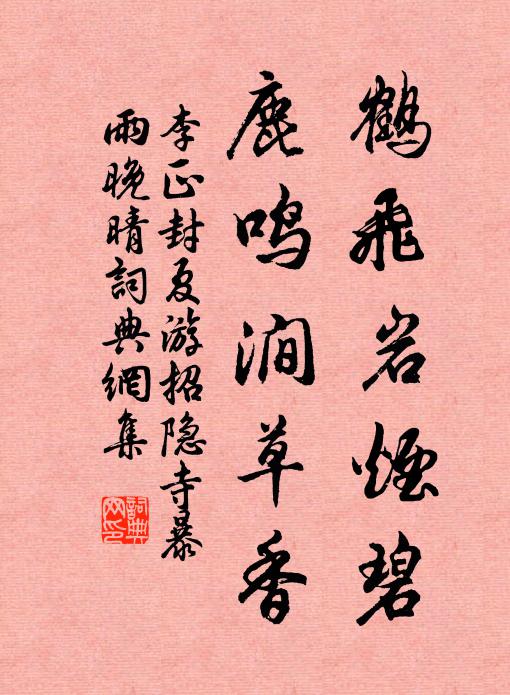 鹤飛岩煙碧
鹿鸣澗草香
李正封夏游招隐寺暴
雨晚晴詞典網集
詞典
网印